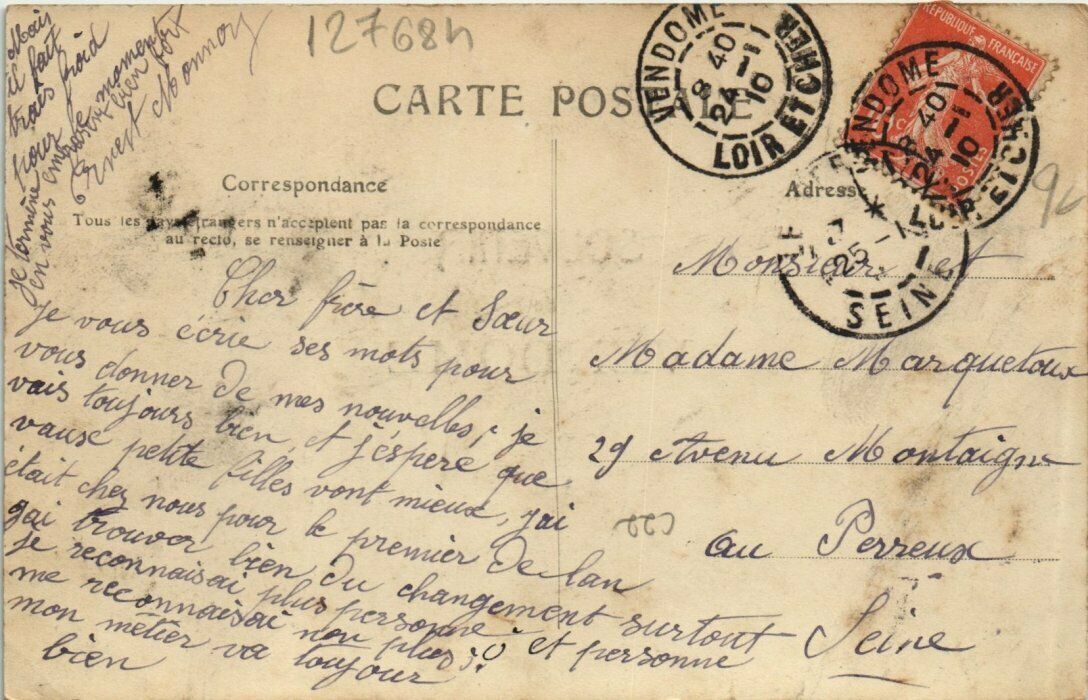 127684
CARTE POSTALE
VENDOME
8 40
24 1
10
LOIR ET CHER
RÉPUBLIQUE FRANÇAISE
POSTES
VENDOME
8 40
24 1
10
LOIR ET CHER
25 - 1
SEINE
Correspondance
Tous les pays étrangers n'acceptent pas la correspondance
au recto, se renseigner à la Poste
Adresse
Cher frère et Sœur
Je vous écrie ses mots pour
vous donner de mes nouvelles, je
vais toujours bien et j'éspère que
vause petite filles vont mieux, j'ai
était chez nous pour le premier de lan
jai trouver bien du changement surtout
je reconnaisai plus personne et personne
me reconnaisai non plus
mon métier va toujour
bien
Mais
il fait
trais froid
pour
moment
je termine
en vous
bien fort
Monsieur et
Madame Marquetoux
29 Avenu Montaigne
au Perreux
Seine
C22